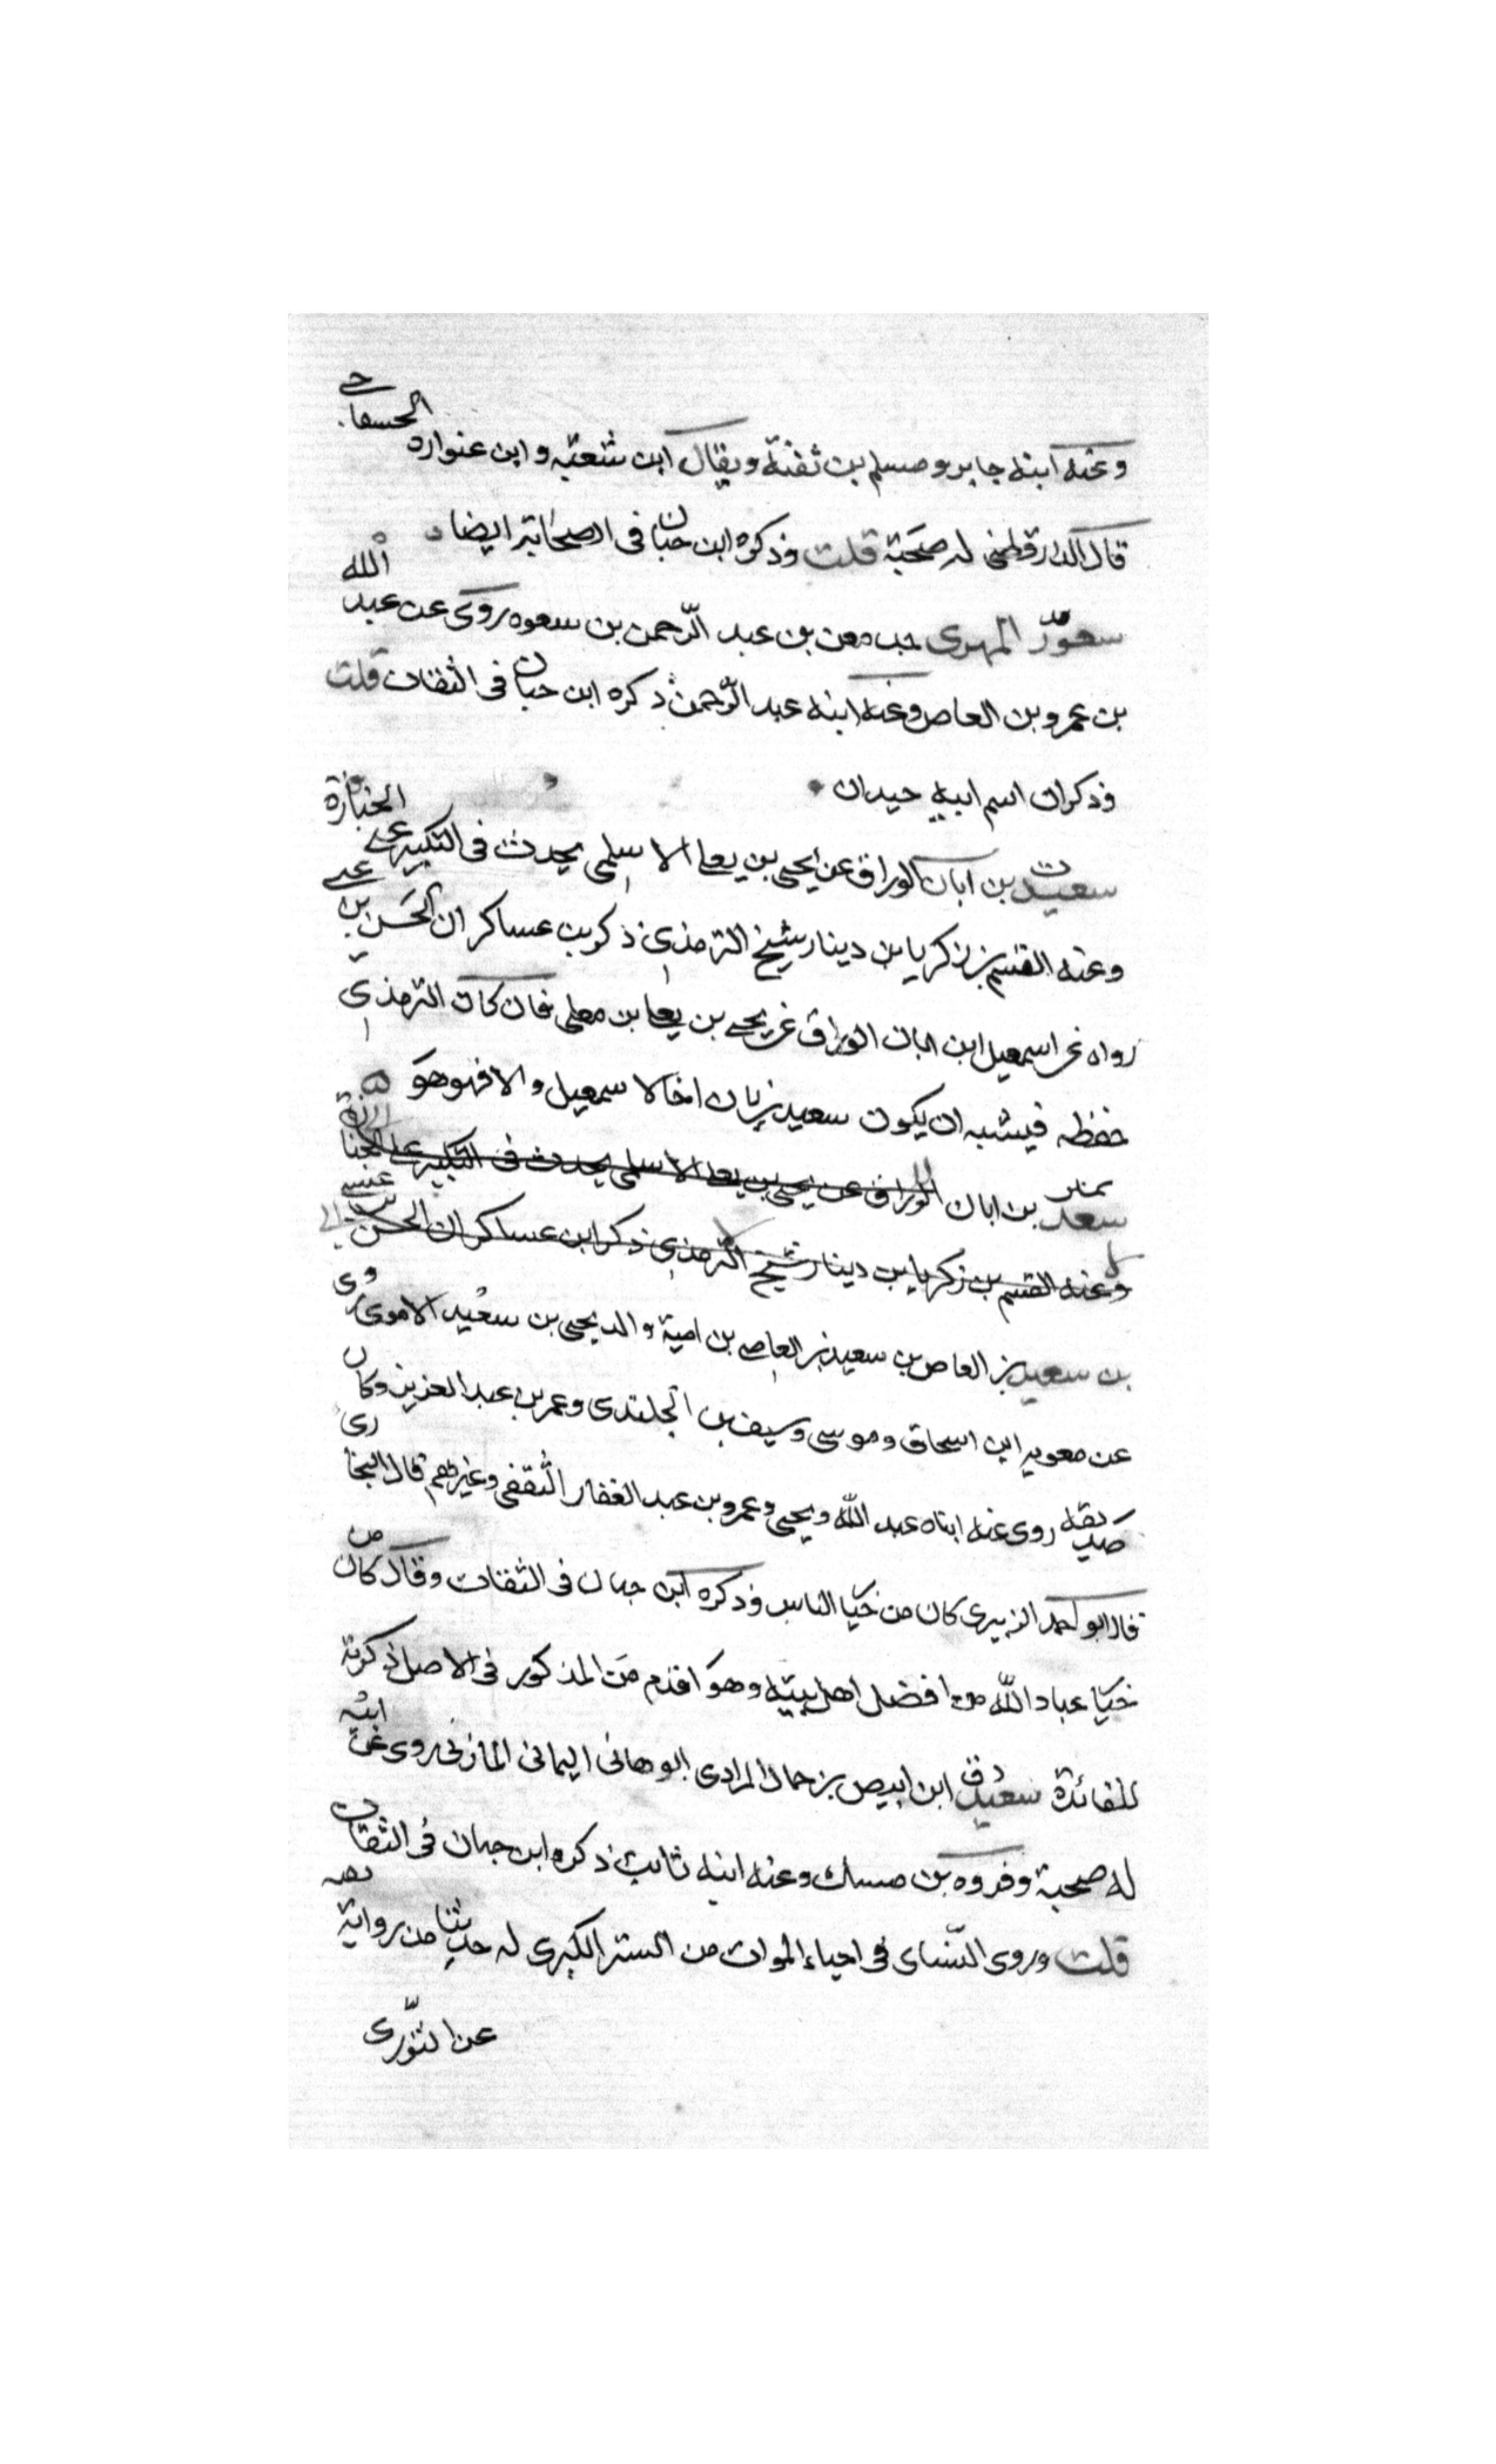 وعنه ابنه جابر ومسلم بن ثفنة ويقال ابن شعبة وابن عنواره الحسحاحى
قال الدارقطنى له صحبة قلت وذكره ابن حبان فى الصحابة ايضا
سعوة المهرى جد معن بن عبد الرحمن بن سعوه روى عن عبد الله
بن عمرو بن العاص وعنه ابنه عبد الرحمن ذكره ابن حبان فى الثقات قلت
وذكر ان اسم ابيه حيدان
سعيد بن ابان الوراق عن يحيى بن يعلى الاسلمى يحدث فى التكبير على الجنازة
وعنه القسم بن زكريا بن دينار شيخ الترمذى ذكر بن عساكر ان الحسن بن عيسى
رواه عن اسمعيل ابن ابان الوراق عن يحيى بن يعلى بن معلى فان كان الترمذى
حفظه فيشبه ان يكون سعيد بن ابان اخا لاسمعيل والا فهو هو
سعيد بن ابان الوراق عن يحيى بن يعلى الاسلمى يحدث فى التكبير على الجنازة
وعنه القسم بن زكريا بن دينار شيخ الترمذى ذكر ابن عساكر ان الحسن بن عيسى
بن سعيد بن العاص بن سعيد بن العاص بن امية والد يحيى بن سعيد الاموى روى
عن معوية ابن اسحاق وموسى وسيف بن الجلندى وعمر بن عبد العزيز وكان
صديقه روى عنه ابناه عبد الله ويحيى وعمرو بن عبد الغفار الثقفى وغيرهم قال البخارى
قال ابو احمد الزبيرى كان من خيار الناس وذكره ابن حبان فى الثقات وقال كان من
خيار عباد الله من افضل اهل بيته وهو اقدم من المذكور فى الاصل ذكرته
للفائدة سعيد ابن ابيض بن حمال المرادى ابو هانى اليمانى المازنى روى عن ابيه
له صحبة وفروه بن مسيك وعنه ابنه ثابت ذكره ابن حبان فى الثقات
قلت وروى النسائى فى احياء الموات من السنن الكبرى له حديثا من رواية
عن الثورى